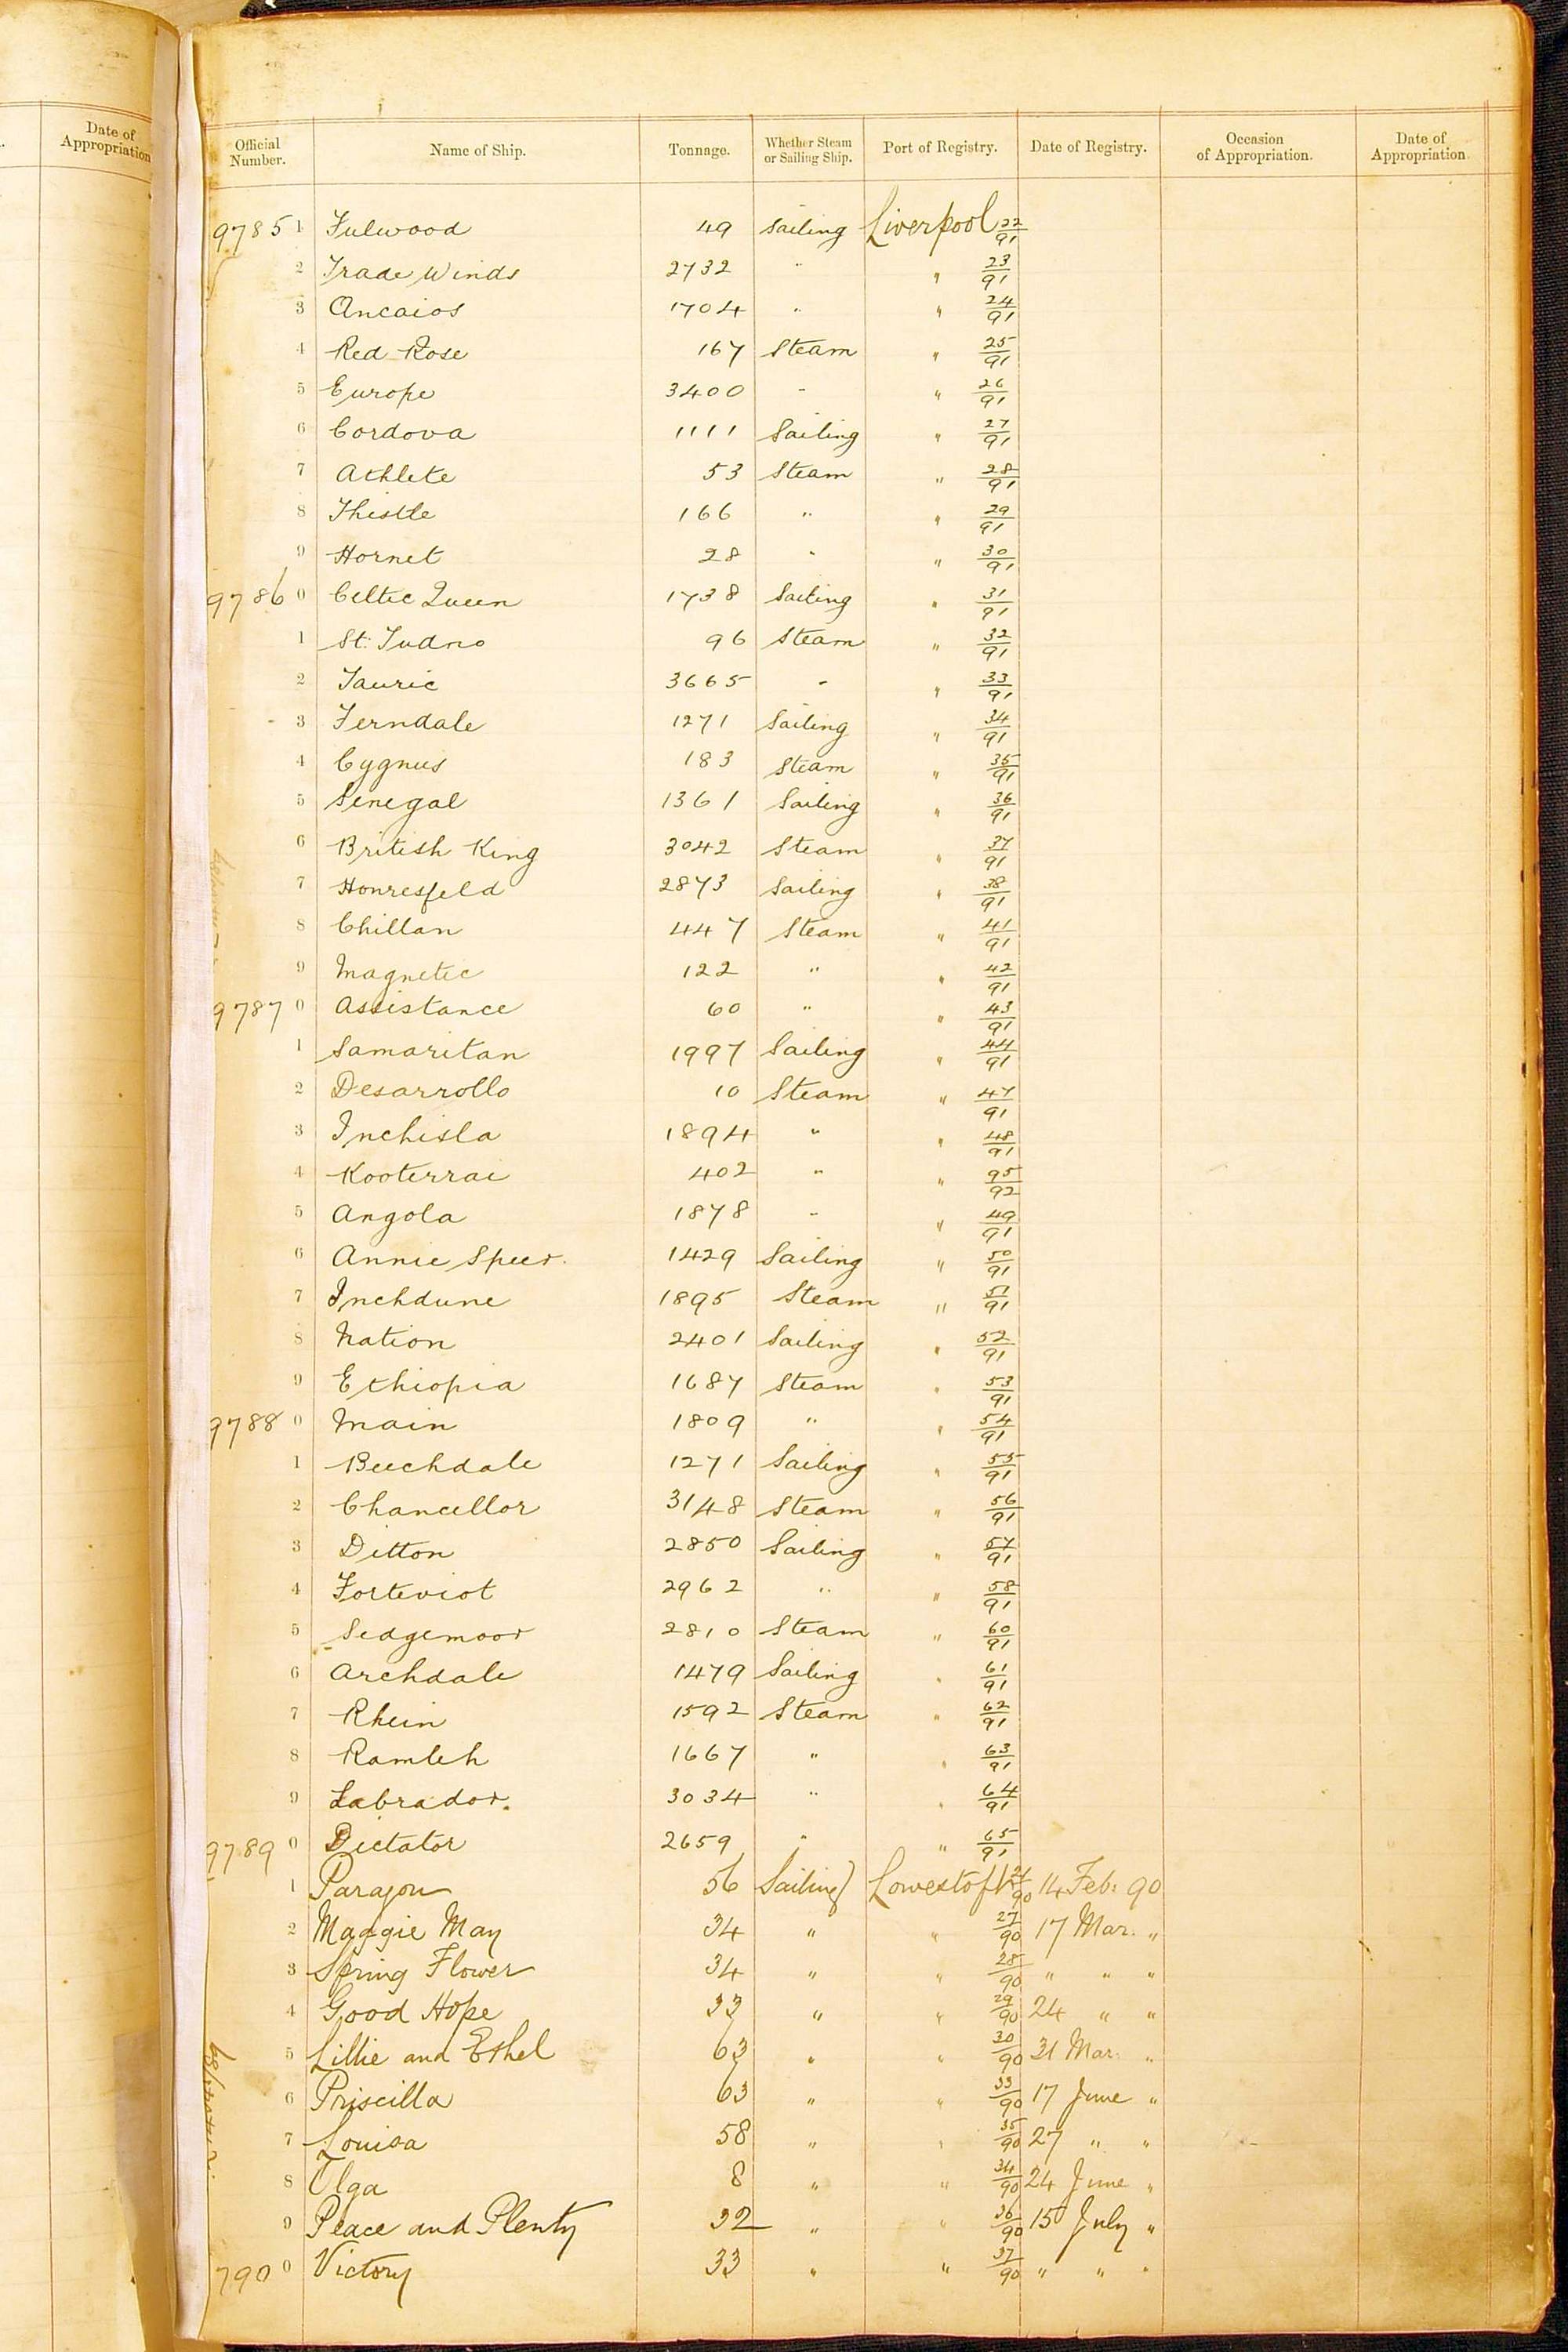 Date of Appropriation
Official Number. Name of Ship. Tonnage. Whether Steam or Sailing Ship. Port of Registry. Date of Registry. Occasion of Appropriation. Date of Appropriation.
97851 Fulwood 49 Sailing Liverpool 22/91
2 Trade Winds 2732 " " 23/91
3 Ancaios 1704 " " 24/91
4 Red Rose 167 Steam " 25/91
5 Europe 3400 " " 26/91
6 Cordova 1111 Sailing " 27/91
7 Athlete 53 Steam " 28/91
8 Thistle 166 " " 29/91
9 Hornet 28 " " 30/91
97860 Celtic Queen 1738 Sailing " 31/91
1 St. Tudno 96 Steam " 32/91
2 Tauric 3665 " " 33/91
3 Ferndale 1271 Sailing " 34/91
4 Cygnus 183 Steam " 35/91
5 Senegal 1361 Sailing " 36/91
6 British King 3042 Steam " 37/91
7 Honresfeld 2873 Sailing " 38/91
8 Chillan 447 Steam " 41/91
9 Magnetic 122 " " 42/91
97870 Assistance 60 " " 43/91
1 Samaritan 1997 Sailing " 44/91
2 Desarrollo 10 Steam " 47/91
3 Inchisla 1894 " " 48/91
4 Kooterrai 402 " " 95/92
5 Angola 1878 " " 49/91
6 Annie Speer. 1429 Sailing " 50/91
7 Inchdune 1895 Steam " 51/91
8 Nation 2401 Sailing " 52/91
9 Ethiopia 1687 Steam " 53/91
97880 Main 1809 " " 54/91
1 Beechdale 1271 Sailing " 55/91
2 Chancellor 3148 Steam " 56/91
3 Ditton 2850 Sailing " 57/91
4 Forteviot 2962 " " 58/91
5 Sedgemoor 2810 Steam " 60/91
6 Archdale 1479 Sailing " 61/91
7 Rhein 1592 Steam " 62/91
8 Ramleh 1667 " " 63/91
9 Labrador. 3034 " " 64/91
97890 Dictator 2659 " " 65/91
1 Paragon 56 Sailing Lowestoft 21/90 14 Feb: 90
2 Maggie May 34 " " 27/90 17 Mar. "
3 Spring Flower 34 " " 28/90 " " "
4 Good Hope 33 " " 29/90 24 " "
5 Lillie and Ethel 63 " " 30/90 31 Mar. "
6 Priscilla 63 " " 33/90 17 June "
7 Louisa 58 " " 35/90 27 " "
8 Olga 8 " " 34/90 24 June "
9 Peace and Plenty 32 " " 36/90 15 July "
7900 Victory 33 " " 37/90 " " "